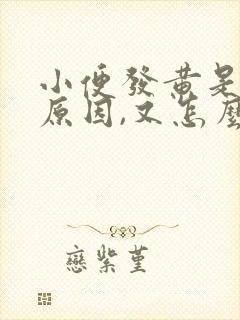 小便發黃是
原因,又怎麼
戀紫堇